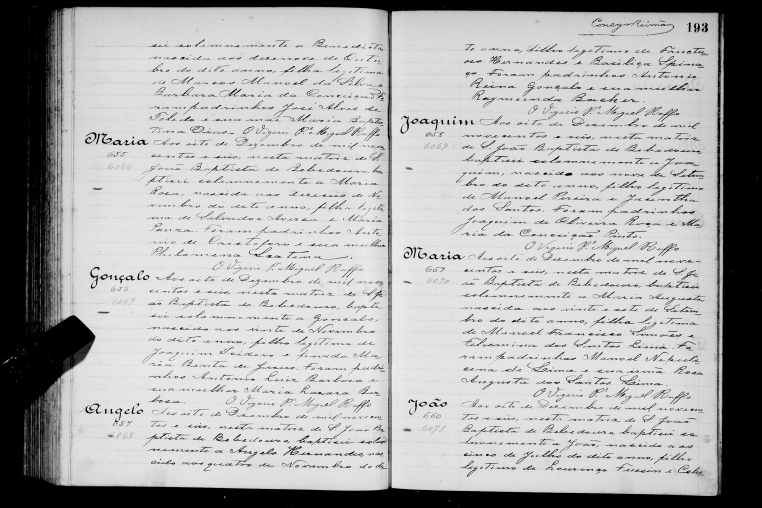 sei solemnemente a Benedicta
nascida aos dezenove de Outu-
bro do dito anno, filha legitima
de Marcos Manoel da Silva e
Barbara Maria da Conceição. Fo-
ram padrinhos José Alves de
Toledo e sua mãe Maria Baptis-
O Vigario Pe. Miguel Raffo
Maria
655
Aos oito de Dezembro de mil nove-
centos e seis, nesta matriz de S.
João Baptista de Bebedouro ba-
ptisei solemnemente a Maria
Rosa, nascida aos de No-
vembro do dito anno, filha legiti-
ma de Salvador e Maria
Foram padrinhos Anto-
nio de Cristoforo e sua mulher
Philomena
O Vigario Pe. Miguel Raffo
Gonçalo
656
6067
Aos oito de Dezembro de mil nove-
centos e seis nesta matriz de S. Jo-
ão Baptista de Bebedouro, bapti-
sei solemnemente a Gonçalo,
nascido aos vinte de Novembro
do dito anno, filho legitimo de
Joaquim Isidoro e finada Ma-
ria Benta de Jesus. Foram padri-
nhos Antonio Luiz Barbosa e
sua mulher Maria Lazara Bar-
bosa. O Vigario Pe. Miguel Raffo
Angelo
657
6068
Aos oito de Dezembro de mil novecen-
tos e seis, nesta matriz de S. João Ba-
ptista de Bebedouro, baptisei solem-
nemente a Angelo Hernandes, nas-
cido aos quatro de Novembro do di-
193
to anno, filho legitimo de Fructu-
oso Hernandes e Basiliça Spino-
ça. Foram padrinhos Antonio
Reina Gonçalo e sua mulher
Raymunda
O Vigario Pe. Miguel Raffo
Joaquim
658
6069
Aos oito de Dezembro de mil
novecentos e seis, nesta matriz
de S. João Baptista de Bebedouro
baptisei solemnemente a Joa-
quim, nascido aos nove de Setem-
bro do dito anno, filho legitimo
de Manoel Pereira e Jacintha
dos Santos. Foram padrinhos
Joaquim de Oliveira Rosa e Ma-
ria da Conceição Pinto.
O Vigario Pe. Miguel Raffo
Maria
659
6070
Aos oito de Dezembro de mil nove-
centos e seis, nesta matriz de S. Jo-
ão Baptista de Bebedouro, baptisei
solemnemente a Maria Augusta
nascida aos vinte e sete de Setem-
bro do dito anno, filha legitima
de Manoel Francisco Simões e
Filomina dos Santos Lima. Fo-
ram padrinhos Manoel
de Lima e sua irmã Rosa
Augusta dos Santos Lima.
O Vigario Pe. Miguel Raffo
João
660
6071
Aos oito de Dezembro de mil novecen-
tos e seis, nesta matriz de S. João
Baptista de Bebedouro baptisei so-
lemnemente a João, nascido aos
cinco de Julho do dito anno, filho
legitimo de Lourenço e